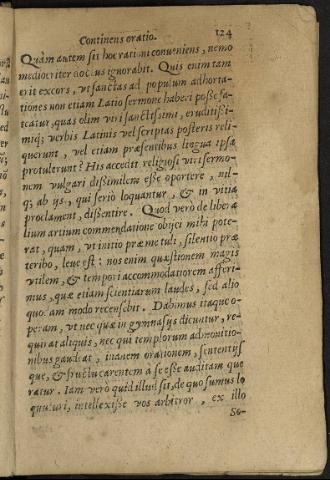 Continens oratio. 124
Quàm autem sit hoc rationi conveniens, nemo
mediocriter doctus ignorabit. Quis enim tam
erit excors, vt sanctas ad populum adhorta-
tiones non etiam Latio sermone haberi posse fa-
teatur, quas olim viri sanctissimi, eruditissi-
miq; verbis Latinis vel scriptas posteris reli-
querunt, vel etiam præsentibus lingua ipsa
protulerunt? His accedit religiosi viri sermo-
nem vulgari dissimilem esse oportere, nil-
q; ab ijs, qui seriò loquantur, & in vitia
proclament, dissentire. Quod verò de libera
lium artium commendatione objici mihi pote-
rat, quam, vt initio præ me tuli, silentio præ
teribo, leve est: nos enim quæstionem magis
vtilem, & tempori accommodatiorem afferi-
mus, quæ etiam scientiarum laudes, sed alio
quodam modo recensebit. Dabimus itaque o-
peram, vt nec quæ in gymnasijs dicuntur, re-
quirat aliquis, nec qui templorum admonitio-
nibus gaudeat, inanem orationem, sententijs
que, & fructu carentem a se esse auditam que
ratur. Iam verò quid illud sit, de quo sumus lo
quuturi, intellexisse vos arbitror, ex illo
So-